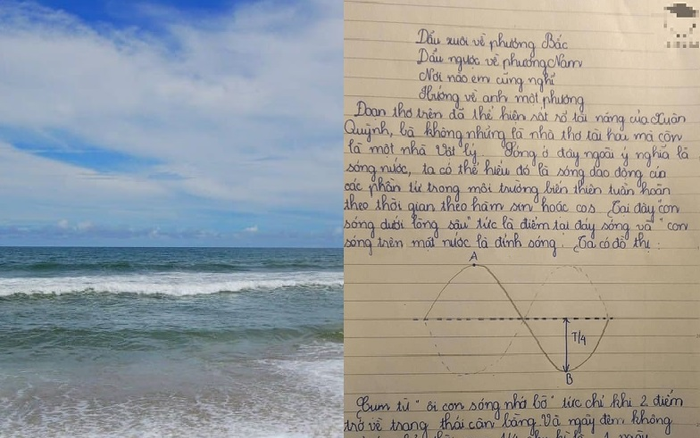 Dẩu xuôi về phương Bắc
Dẩu ngược về phương Nam
Nơi nào em cũng nghĩ
Hướng về anh một phương
Đoạn thơ trên đã thể hiện sất số tài năng của Xuân
Quỳnh, bà không những là nhà thơ tài hoa mà còn
là một nhà Vật lý. Sóng ở đây ngoài ý nghĩa là
sóng nước, ta có thể hiểu đó là sóng dao động của
các phần tử trong môi trường biến thiên tuần hoàn
theo thời gian theo hàm sin hoặc cos. Tại đây "con
sóng dưới lòng sâu" tức là điểm tại đáy sóng và "con
sóng trên mặt nước là đỉnh sóng. Ta có đồ thị:
A
T/4
B
Cụm từ "ôi con sóng nhớ bờ" tức chỉ khi 2 điểm
trở về trạng thái cân bằng. Và ngày đêm không